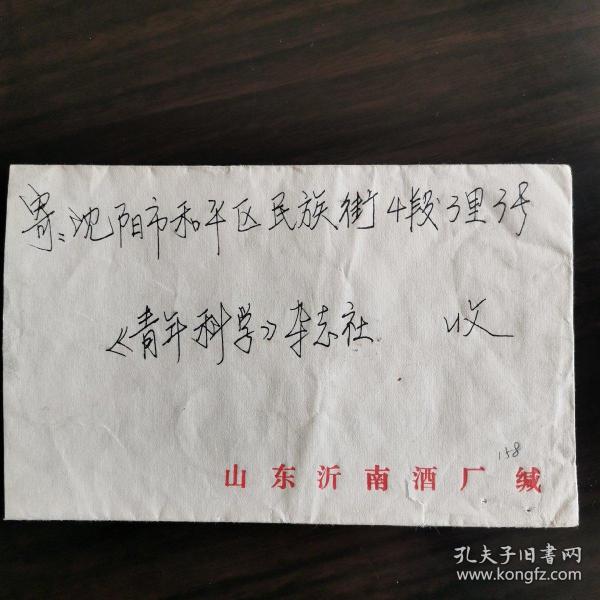 寄:沈阳市和平区民族街4段3里3号
《青年科学》杂志社 收
158
山东沂南酒厂缄
孔夫子旧书网
www.kongfz.com